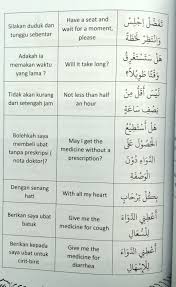 Silakan duduk dan
tunggu sebentar
Have a seat and
wait for a moment,
please
تَفَضَّلْ اِجْلِسْ
وَانْتَظِرْ لَحْظَةً
Adakah ia
memakan waktu
yang lama ?
Will it take long?
هَلْ سَتَسْتَغْرِقُ
وَقْتًا طَوِيْلًا؟
Tidak akan kurang
dari setengah jam
Not less than half
an hour
لَيْسَ أَقَلَّ مِنْ
نِصْفِ سَاعَةٍ
Bolehkah saya
membeli ubat
tanpa preskripsi (
nota doktor)?
May I get the
medicine without a
prescription?
هَلْ أَسْتَطِيْعُ
الْحُصُوْلَ عَلَى
الدَّوَاءِ دُوْنَ
الْوَصْفَةِ
Dengan senang
hati
With all my heart
بِكُلِّ تَرْحَابٍ
Berikan saya ubat
batuk
Give me the
medicine for cough
أَعْطِنِي الدَّوَاءَ
لِلسُّعَالِ
Berikan kepada
saya ubat untuk
cirit-birit
Give me the
medicine for
diarrhea
أَعْطِنِي الدَّوَاءَ
لِلْإِسْهَالِ